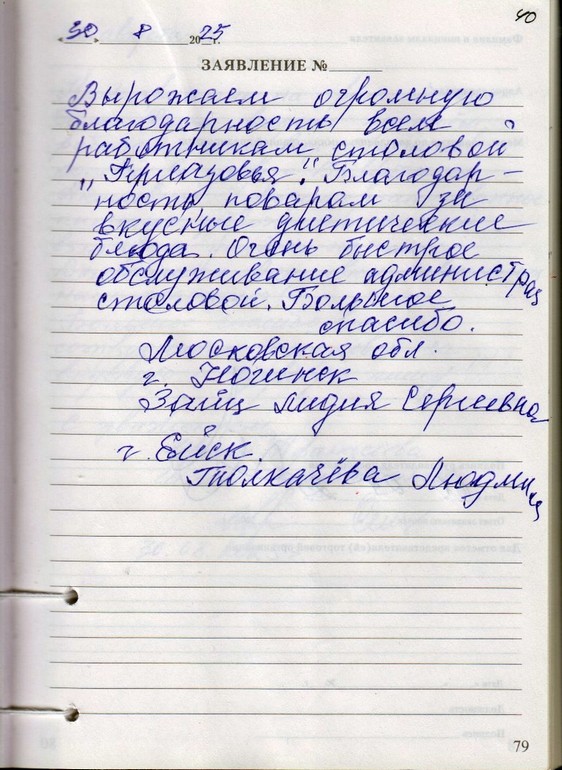 40
„30" 8 2025 г.
ЗАЯВЛЕНИЕ №
Вырожаем огромную
благодарность всем
работникам столовой
„Приазовья". Благодар-
ность поварам за
вкусные диетические
блюда. Очень быстрое
обслуживание администрац
столовой. Большое
спасибо.
Московская обл.
г. Ногинск
Заяц Лидия Сергеевна
г. Ейск.
Толкачёва Людмила
79